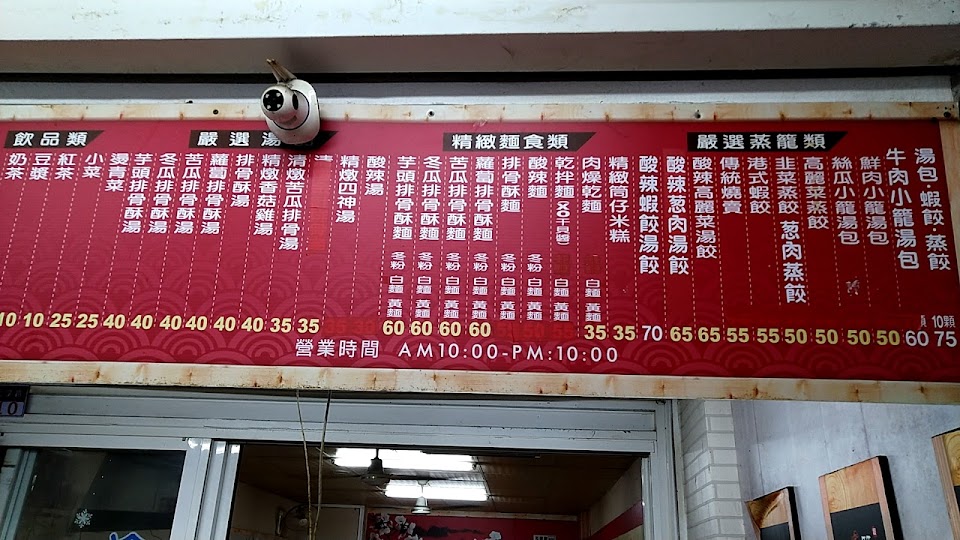 飲品類
嚴選湯
精緻麵食類
嚴選蒸籠類
湯包·蝦餃·蒸餃
牛肉小籠湯包
鮮肉小籠湯包
絲瓜小籠湯包
高麗菜蒸餃
韭菜蒸餃 葱肉蒸餃
港式蝦餃
傳統燒賣
酸辣高麗菜湯餃
酸辣葱肉湯餃
酸辣蝦餃湯餃
精緻筒仔米糕
肉燥乾麵 白麵 黃麵
乾拌麵(XO干貝醬) 白麵 黃麵
酸辣麵 冬粉 白麵 黃麵
排骨酥麵 冬粉 白麵 黃麵
蘿蔔排骨酥麵 冬粉 白麵 黃麵
苦瓜排骨酥麵 冬粉 白麵 黃麵
冬瓜排骨酥麵 冬粉 白麵 黃麵
芋頭排骨酥麵 冬粉 白麵 黃麵
酸辣湯
精燉四神湯
清燉苦瓜排骨湯
精燉香菇雞湯
排骨酥湯
蘿蔔排骨酥湯
苦瓜排骨酥湯
冬瓜排骨酥湯
芋頭排骨酥湯
燙青菜
小菜
紅茶
豆漿
奶茶
10顆
10 10 25 25 40 40 40 40 40 40 35 35 60 60 60 60 35 35 70 65 65 55 55 50 50 50 50 60 75
營業時間 AM10:00-PM:10:00